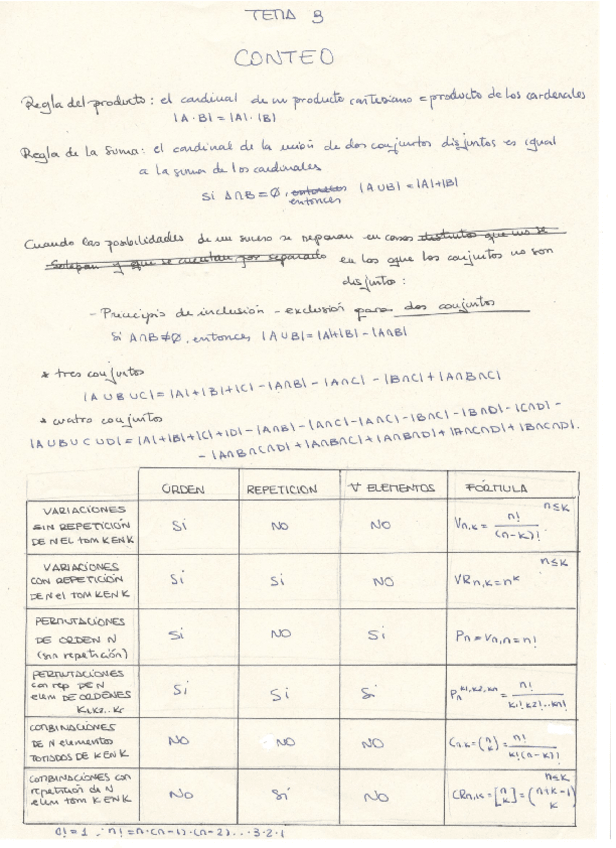 TEMA 3
CONTEO
Regla del producto: el cardinal de un producto cartesiano = producto de los cardenales
|A · B| = |A| · |B|
Regla de la suma: el cardinal de la unión de dos conjuntos disjuntos es igual
a la suma de los cardinales
Si A∩B = ∅, entonces |A∪B| = |A|+|B|
entonces
Cuando las posibilidades de un suceso se separan en casos distintos que no se
solapan y que se cuentan por separado en los que los conjuntos no son
disjuntos:
- Principio de inclusión - exclusión para dos conjuntos
Si A∩B≠∅, entonces |A∪B| = |A|+|B| - |A∩B|
* tres conjuntos
|A∪B∪C| = |A|+|B|+|C| - |A∩B| - |A∩C| - |B∩C| + |A∩B∩C|
* cuatro conjuntos
|A∪B∪C∪D| = |A|+|B|+|C|+|D| - |A∩B| - |A∩C| - |A∩C| - |B∩C| - |B∩D| - |C∩D| -
- |A∩B∩C∩D| + |A∩B∩C| + |A∩B∩D| + |A∩C∩D| + |B∩C∩D|.
ORDEN REPETICION ∀ ELEMENTOS FÓRMULA
VARIACIONES
SIN REPETICIÓN
DE N EL TOM K EN K
Si NO NO
Vn,k = n!/(n-k)! n≤k
VARIACIONES
CON REPETICIÓN
DE N el TOM K EN K
Si Si NO
VRn,k = n^k n≤k
PERMUTACIONES
DE ORDEN N
(sin repetición)
Si NO Si
Pn = Vn,n = n!
PERMUTACIONES
con rep DE N
elem DE ORDENES
K1,K2...Kr
Si Si Si
Pn^k1,k2,kn = n!/k1! k2!..kn!
COMBINACIONES
DE N elementos
TOMADOS DE K EN K
NO NO NO
Cn,k = (n k) = n!/k!(n-k)!
COMBINACIONES con
repetición de N
elem tom K EN K
NO Si NO
CRn,k = [n k] = (n+k-1 k) n≤k
0! = 1 ; n! = n·(n-1)·(n-2)...3·2·1